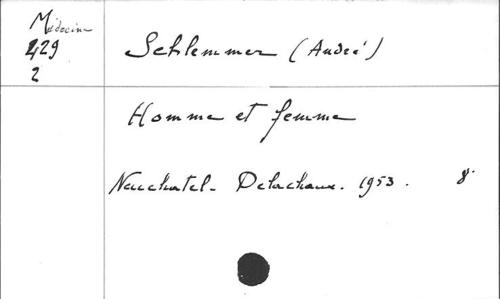 Médecine
429
2
Schlemmer (André)
Homme et femme
Neuchatel - Delachaux. 1953. 8°